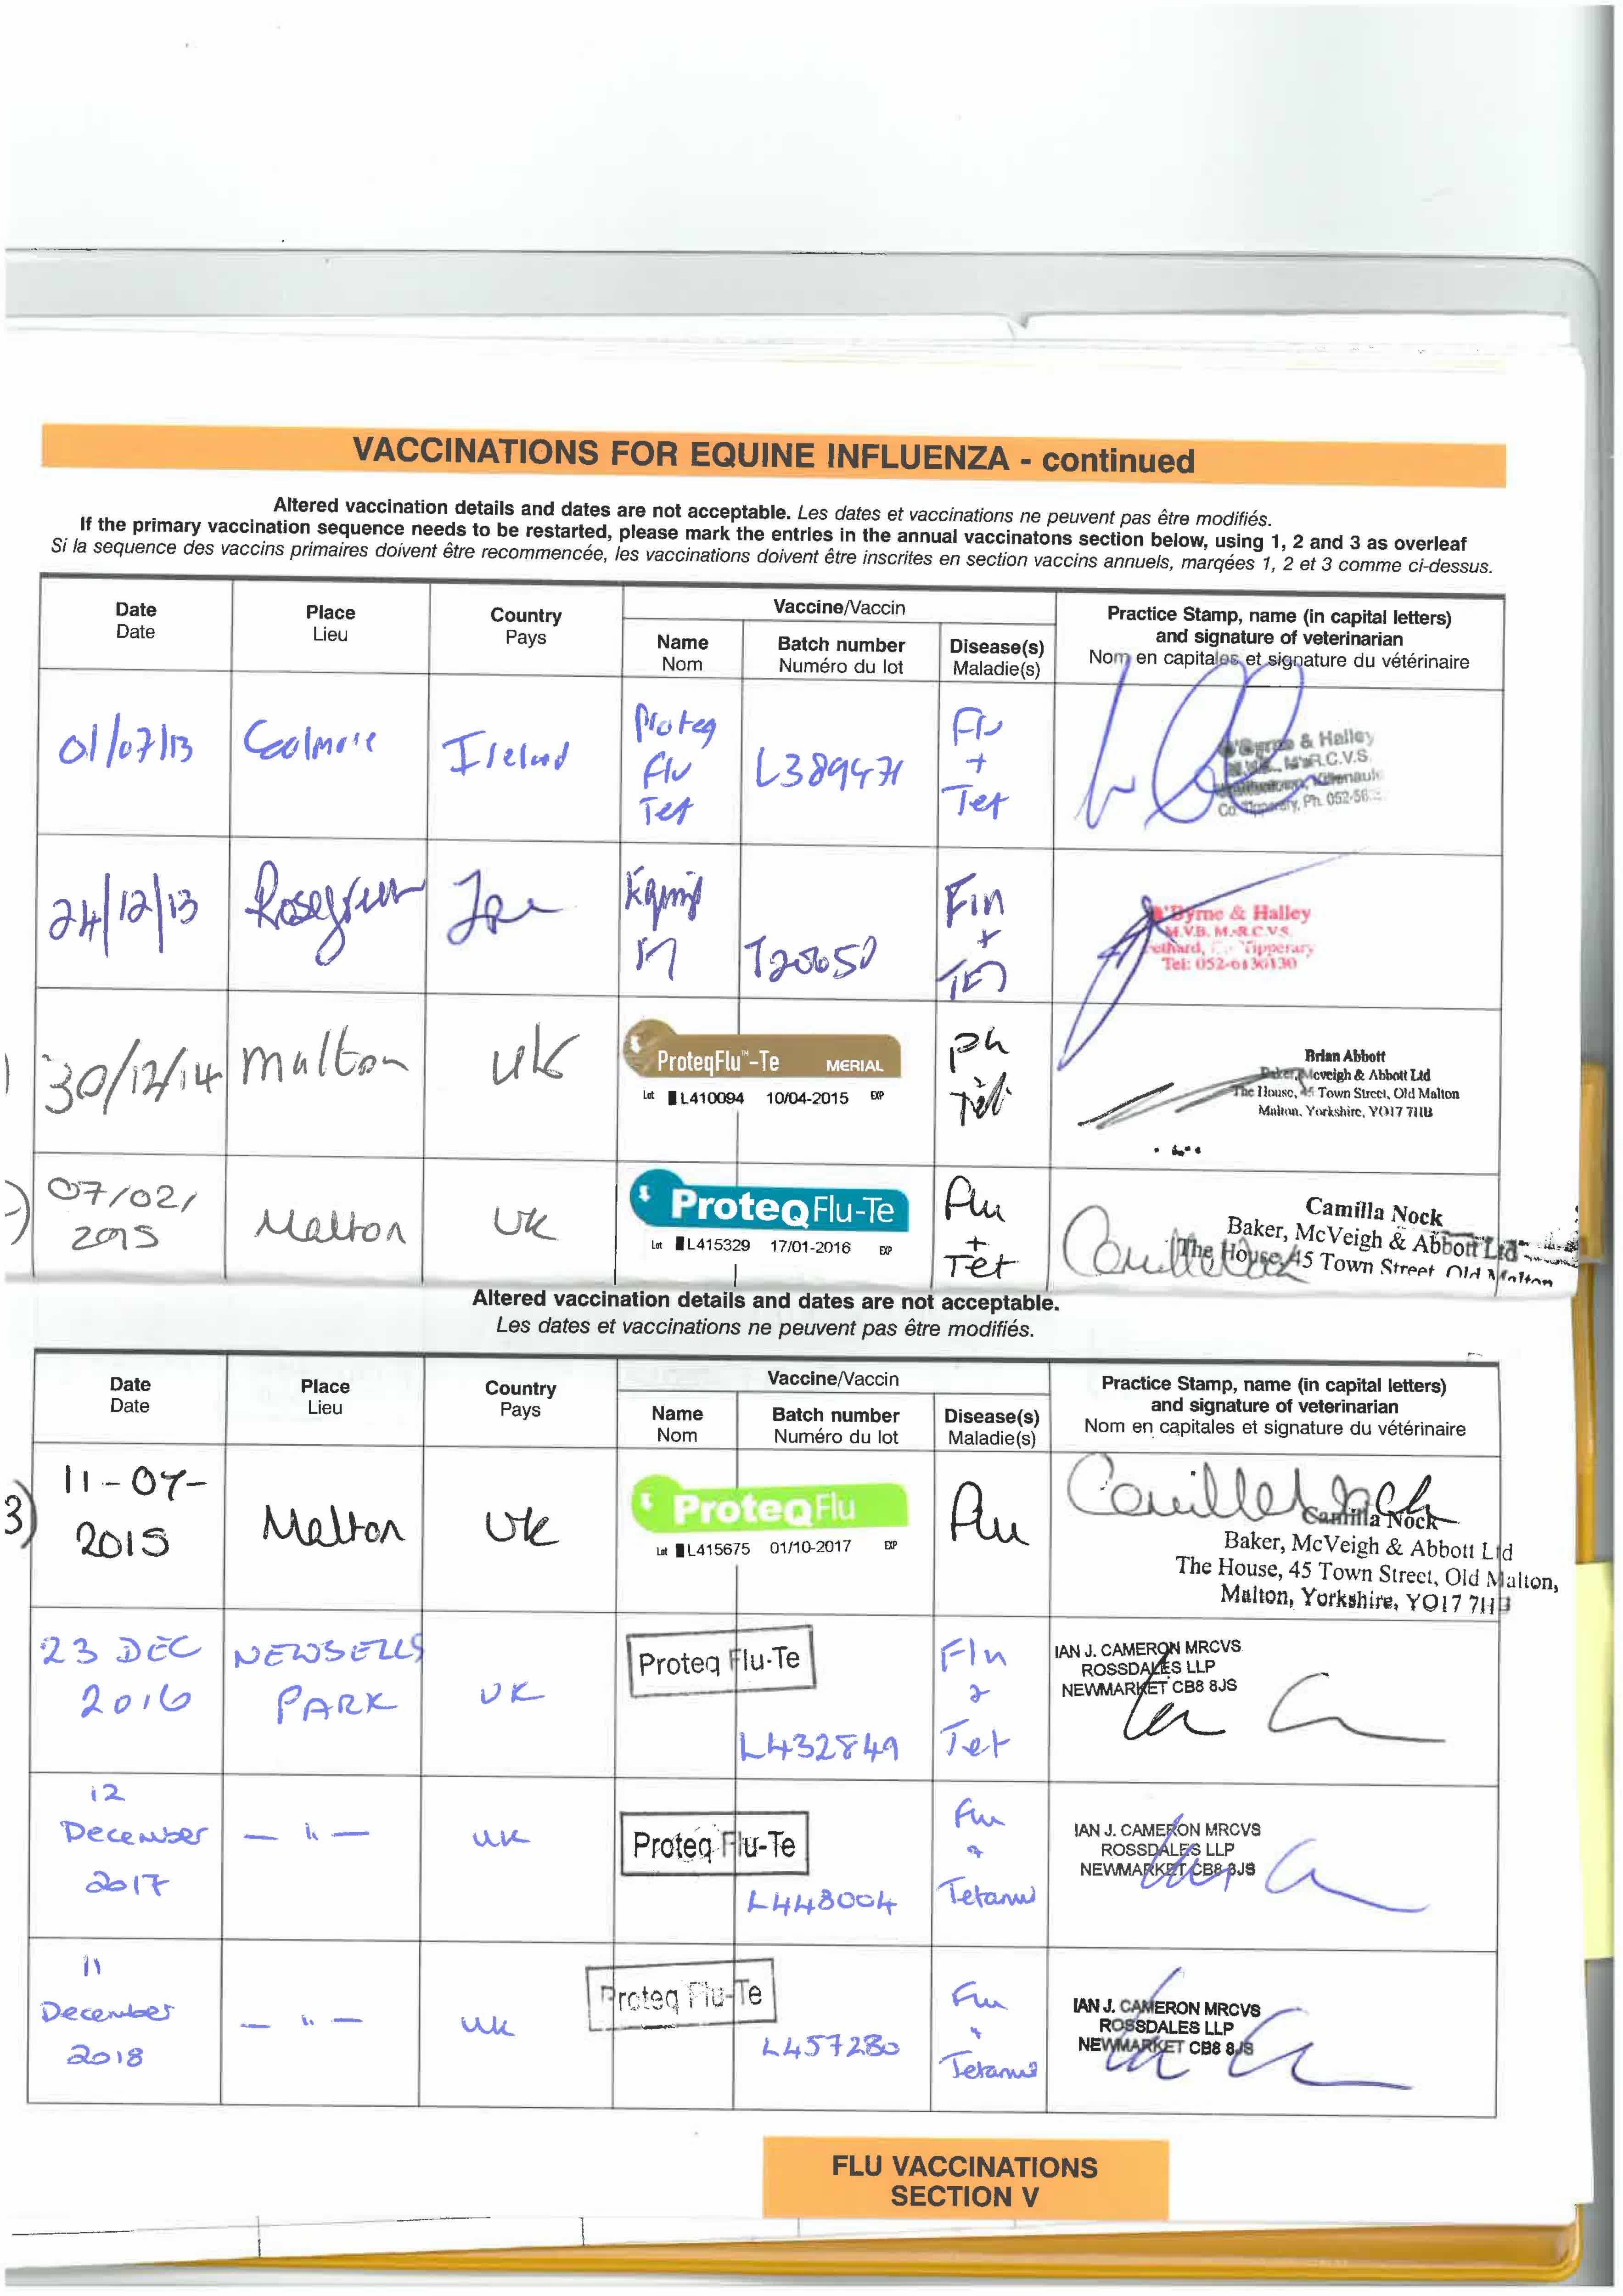 VACCINATIONS FOR EQUINE INFLUENZA - continued
Altered vaccination details and dates are not acceptable. Les dates et vaccinations ne peuvent pas être modifiés.
If the primary vaccination sequence needs to be restarted, please mark the entries in the annual vaccinatons section below, using 1, 2 and 3 as overleaf
Si la sequence des vaccins primaires doivent être recommencée, les vaccinations doivent être inscrites en section vaccins annuels, marqées 1, 2 et 3 comme ci-dessus.
Date
Date
Place
Lieu
Country
Pays
Vaccine/Vaccin
Name
Nom
Batch number
Numéro du lot
Disease(s)
Maladie(s)
Practice Stamp, name (in capital letters)
and signature of veterinarian
Nom en capitales et signature du vétérinaire
01/07/13
Coolmore
Ireland
Proteq
Flu
Tet
L389471
Flu
+
Tet
O'Byrne & Halley
M.R.C.V.S.
Co. Tipperary, Ph. 052-56
24/12/13
Rosegreen
Ire
+
O'Byrne & Halley
M.V.B. M.R.C.V.S.
Fethard, Co. Tipperary
Tel: 052-6130130
30/12/14
Malton
UK
ProteqFlu™-Te MERIAL
Lot L410094 10/04-2015 EXP
Brian Abbott
Baker, Mcveigh & Abbott Ltd
The House, 45 Town Street, Old Malton
Malton, Yorkshire, YO17 7HB
07/02/
2015
Malton
UK
ProteqFlu-Te
Lot L415329 17/01-2016 EXP
Flu
+
Tet
Camilla Nock
Baker, McVeigh & Abbott Ltd
The House, 45 Town Street, Old Malton
Altered vaccination details and dates are not acceptable.
Les dates et vaccinations ne peuvent pas être modifiés.
Date
Date
Place
Lieu
Country
Pays
Vaccine/Vaccin
Name
Nom
Batch number
Numéro du lot
Disease(s)
Maladie(s)
Practice Stamp, name (in capital letters)
and signature of veterinarian
Nom en capitales et signature du vétérinaire
3)
11-07-
2015
Malton
UK
ProteqFlu
Lot L415675 01/10-2017 EXP
Flu
Camilla Nock
Baker, McVeigh & Abbott Ltd
The House, 45 Town Street, Old Malton,
Malton, Yorkshire, YO17 7HB
23 DEC
2016
NEWSELLS
PARK
UK
Proteq Flu-Te
L432849
Flu
&
Tet
IAN J. CAMERON MRCVS
ROSSDALES LLP
NEWMARKET CB8 8JS
12
December
2017
— " —
UK
Proteq Flu-Te
L448004
Flu
&
Tetanus
IAN J. CAMERON MRCVS
ROSSDALES LLP
NEWMARKET CB8 8JS
11
December
2018
— " —
UK
Proteq Flu-Te
L457280
Flu
&
Tetanus
IAN J. CAMERON MRCVS
ROSSDALES LLP
NEWMARKET CB8 8JS
FLU VACCINATIONS
SECTION V